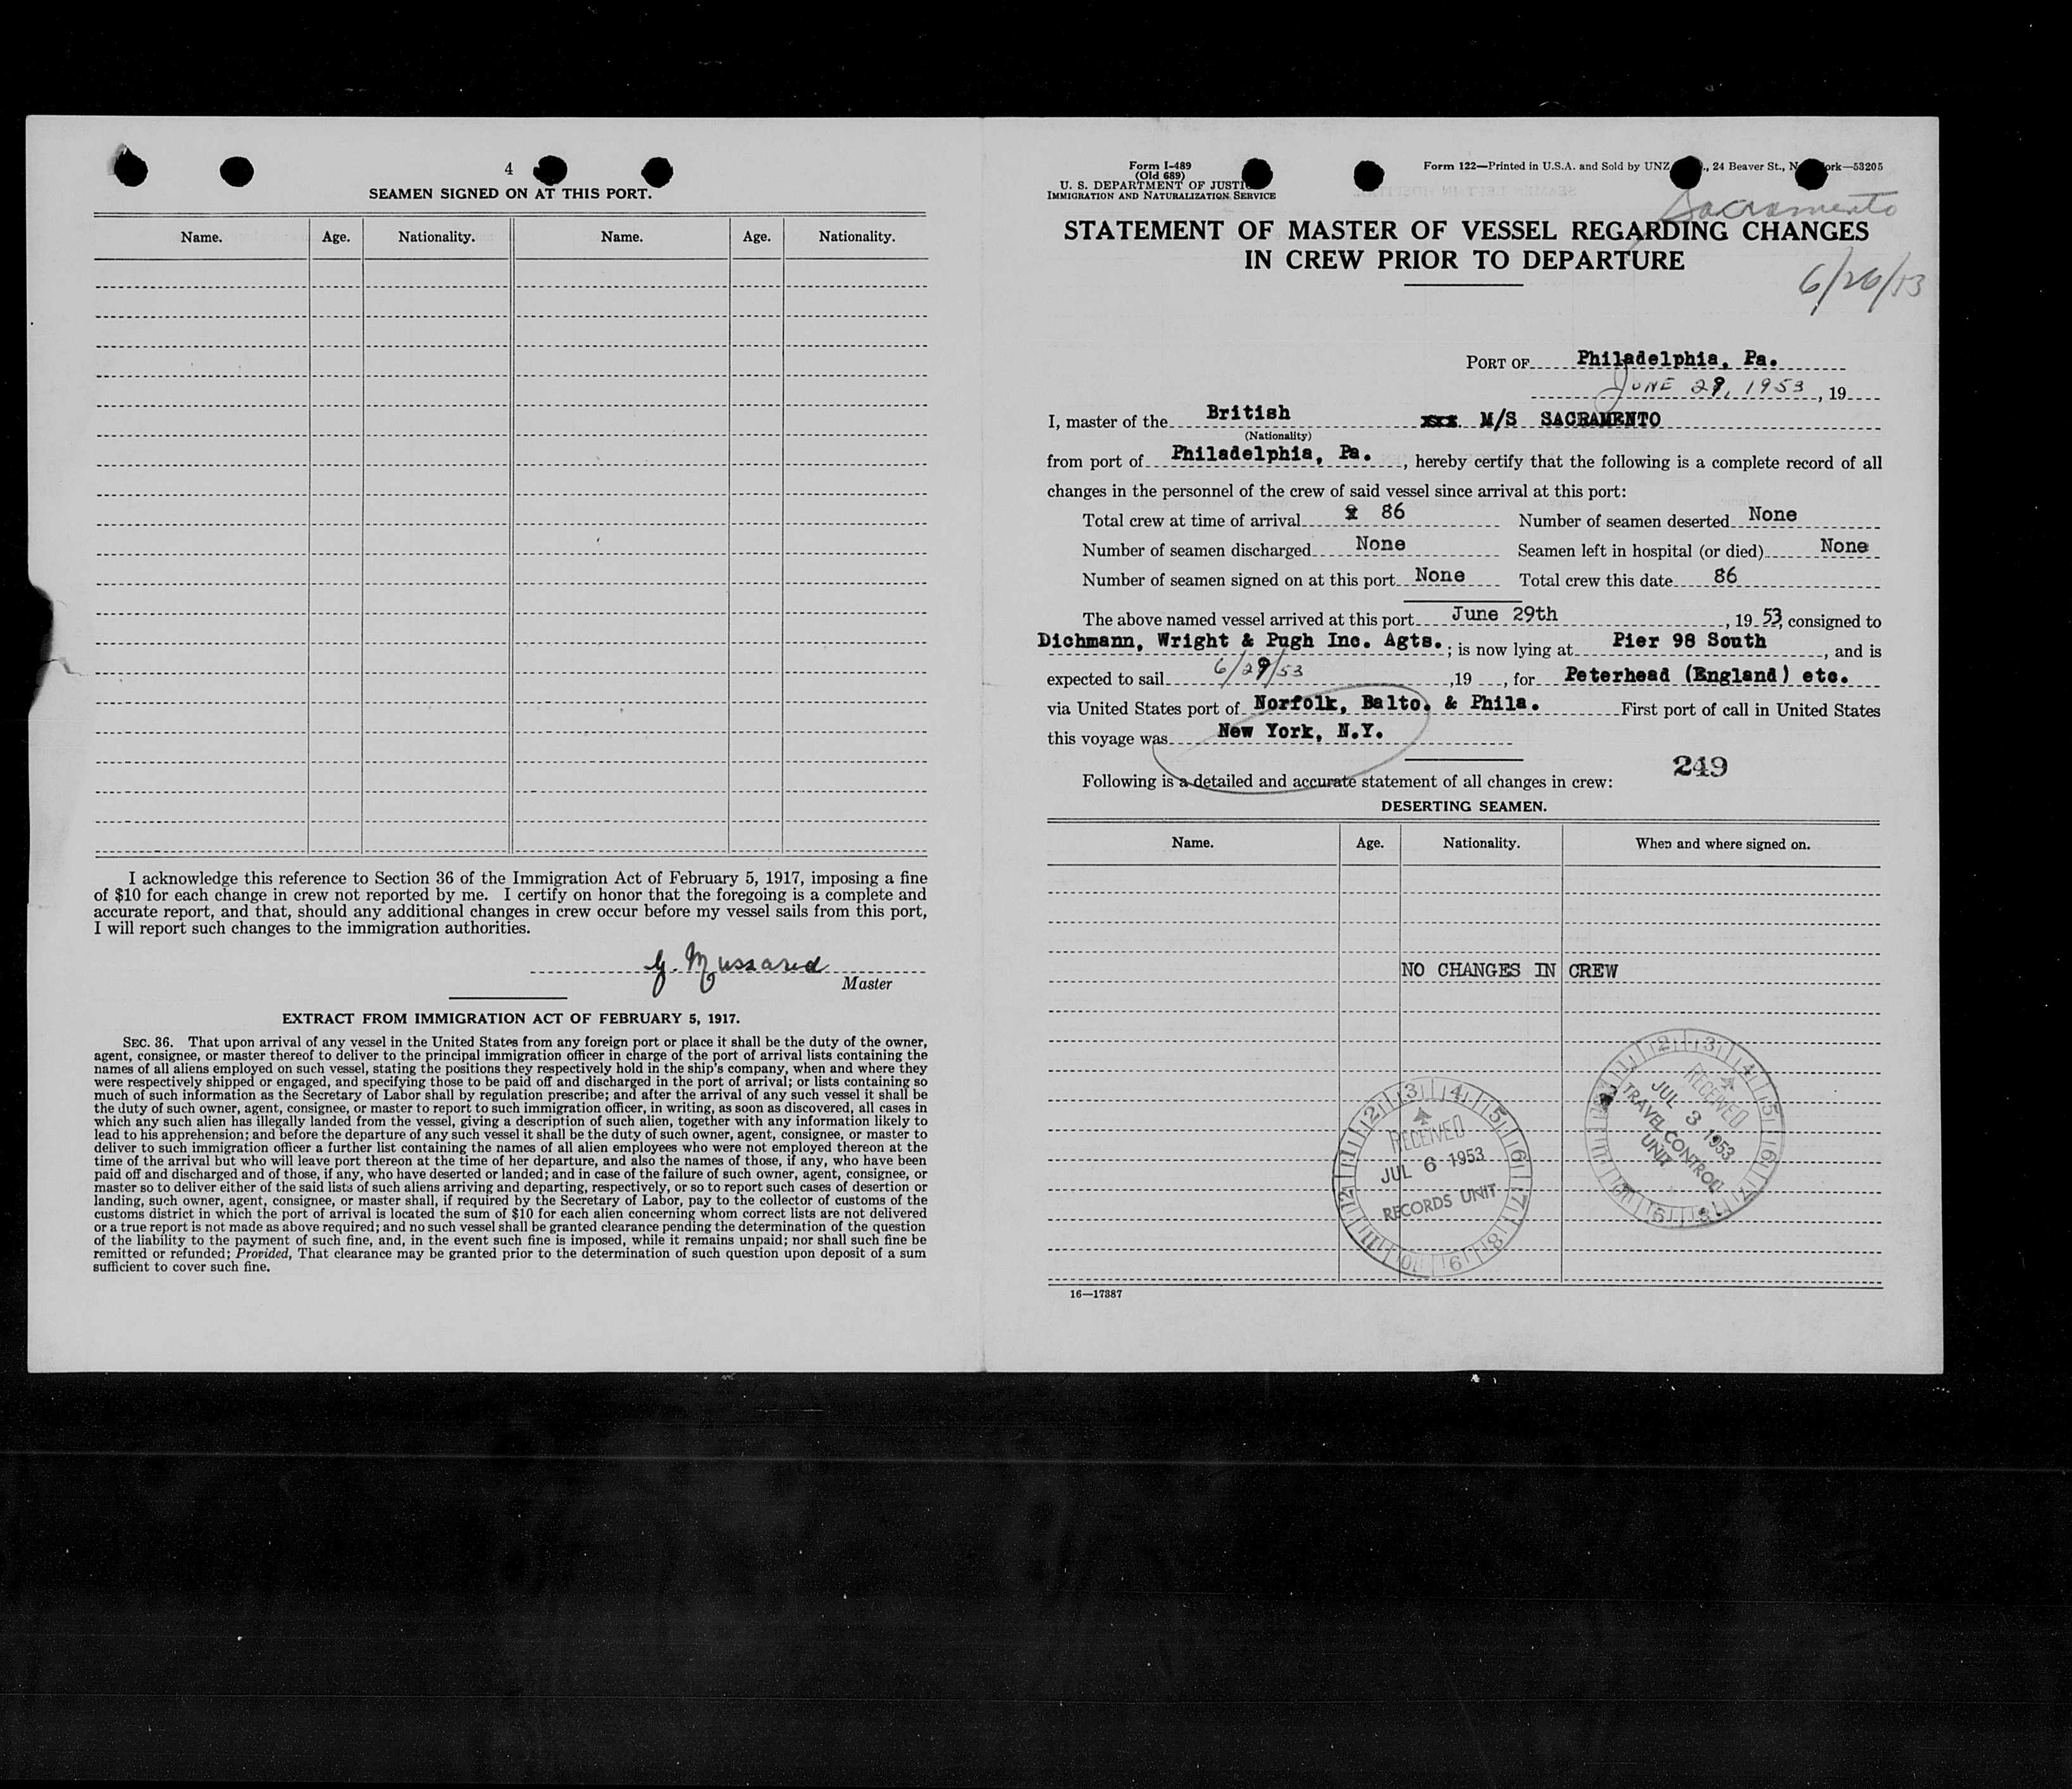 4
SEAMEN SIGNED ON AT THIS PORT.
Name. Age. Nationality. Name. Age. Nationality.
I acknowledge this reference to Section 36 of the Immigration Act of February 5, 1917, imposing a fine
of $10 for each change in crew not reported by me. I certify on honor that the foregoing is a complete and
accurate report, and that, should any additional changes in crew occur before my vessel sails from this port,
I will report such changes to the immigration authorities.
G. Mussared
Master
EXTRACT FROM IMMIGRATION ACT OF FEBRUARY 5, 1917.
SEC. 36. That upon arrival of any vessel in the United States from any foreign port or place it shall be the duty of the owner,
agent, consignee, or master thereof to deliver to the principal immigration officer in charge of the port of arrival lists containing the
names of all aliens employed on such vessel, stating the positions they respectively hold in the ship's company, when and where they
were respectively shipped or engaged, and specifying those to be paid off and discharged in the port of arrival; or lists containing so
much of such information as the Secretary of Labor shall by regulation prescribe; and after the arrival of any such vessel it shall be
the duty of such owner, agent, consignee, or master to report to such immigration officer, in writing, as soon as discovered, all cases in
which any such alien has illegally landed from the vessel, giving a description of such alien, together with any information likely to
lead to his apprehension; and before the departure of any such vessel it shall be the duty of such owner, agent, consignee, or master to
deliver to such immigration officer a further list containing the names of all alien employees who were not employed thereon at the
time of the arrival but who will leave port thereon at the time of her departure, and also the names of those, if any, who have been
paid off and discharged and of those, if any, who have deserted or landed; and in case of the failure of such owner, agent, consignee, or
master so to deliver either of the said lists of such aliens arriving and departing, respectively, or so to report such cases of desertion or
landing, such owner, agent, consignee, or master shall, if required by the Secretary of Labor, pay to the collector of customs of the
customs district in which the port of arrival is located the sum of $10 for each alien concerning whom correct lists are not delivered
or a true report is not made as above required; and no such vessel shall be granted clearance pending the determination of the question
of the liability to the payment of such fine, and, in the event such fine is imposed, while it remains unpaid; nor shall such fine be
remitted or refunded; Provided, That clearance may be granted prior to the determination of such question upon deposit of a sum
sufficient to cover such fine.
Form I-489
(Old 689)
U. S. DEPARTMENT OF JUSTIC
IMMIGRATION AND NATURALIZATION SERVICE
Form 122—Printed in U.S.A. and Sold by UNZ , 24 Beaver St., N ork—53205
Sacramento
STATEMENT OF MASTER OF VESSEL REGARDING CHANGES
IN CREW PRIOR TO DEPARTURE
6/26/53
PORT OF Philadelphia, Pa.
JUNE 29, 1953, 19
I, master of the British xxx M/S SACRAMENTO
(Nationality)
from port of Philadelphia, Pa., hereby certify that the following is a complete record of all
changes in the personnel of the crew of said vessel since arrival at this port:
Total crew at time of arrival 86 Number of seamen deserted None
Number of seamen discharged None Seamen left in hospital (or died) None
Number of seamen signed on at this port None Total crew this date 86
The above named vessel arrived at this port June 29th, 19 53, consigned to
Dichmann, Wright & Pugh Inc. Agts.; is now lying at Pier 98 South, and is
expected to sail 6/29/53, 19 , for Peterhead (England) etc.
via United States port of Norfolk, Balto. & Phila. First port of call in United States
this voyage was New York, N.Y.
249
Following is a detailed and accurate statement of all changes in crew:
DESERTING SEAMEN.
Name. Age. Nationality. When and where signed on.
NO CHANGES IN CREW
RECEIVED
JUL 3 1953
TRAVEL CONTROL
UNIT
RECEIVED
JUL 6 1953
RECORDS UNIT
16—17387